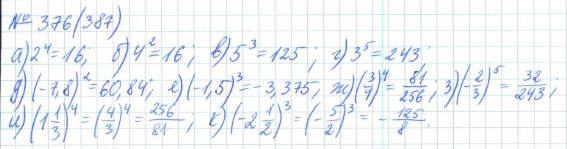 № 376(387)
а) 2⁴=16; б) 4²=16; в) 5³=125; г) 3⁵=243;
д) (-7,8)²=60,84; е) (-1,5)³=-3,375; ж) (3/4)⁴=81/256; з) (-2/3)⁵=32/243;
и) (1 1/3)⁴=(4/3)⁴=256/81; к) (-2 1/2)³=(-5/2)³=-125/8.